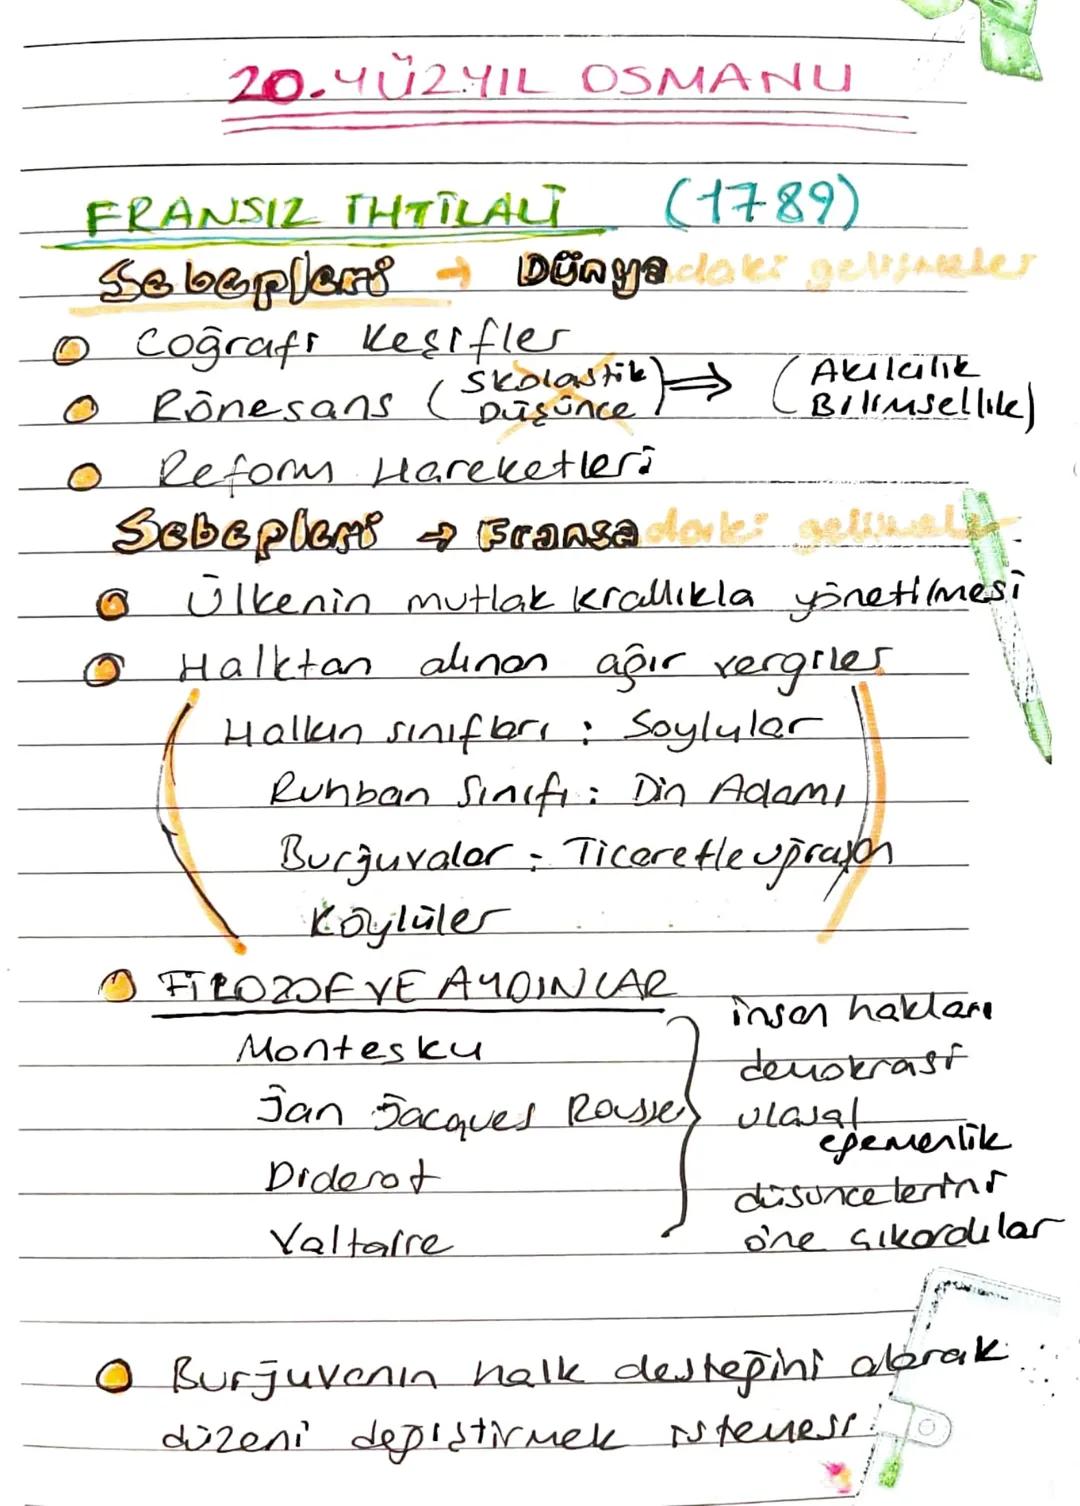 20.YÜZYIL OSMANLI
FRANSIZ İHTİLALİ (1789)
Sebepleri → Dünyadaki gelişmeler
Coğrafi Keşifler
Rönesans (Skolastik Düşünce) ⇒ (Akılcılık Bilimsellik)
Reform Hareketleri
Sebepleri → Fransadaki gelişmeler
Ülkenin mutlak krallıkla yönetilmesi
Halktan alınan ağır vergiler
Halkın sınıfları : Soylular
Ruhban Sınıfı : Din Adamı
Burjuvalar : Ticaretle uğraşan
Köylüler
FİLOZOF VE AYDINLAR
Montesku
Jan Jacques Rousse
Diderot
Valtaire
insan hakları
demokrasi
ulusal
egemenlik
düşüncelerini
öne çıkardılar
Burjuvanın halk desteğini alarak
düzeni değiştirmek istemesi